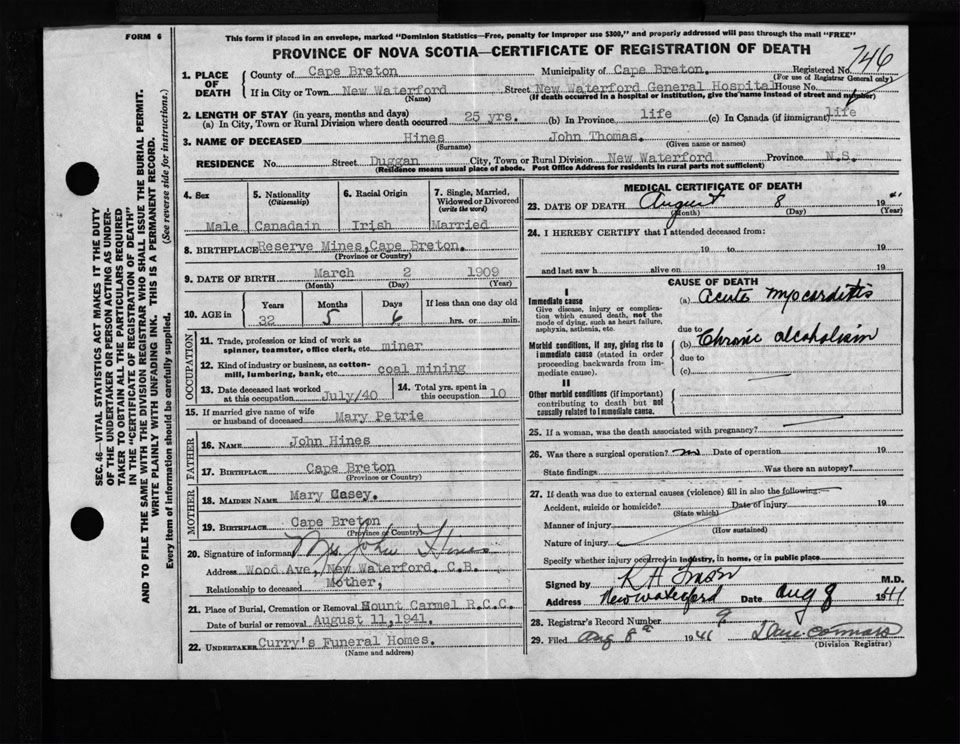 FORM 6
This form if placed in an envelope, marked "Dominion Statistics—Free, penalty for improper use $300," and properly addressed will pass through the mail "FREE"
PROVINCE OF NOVA SCOTIA—CERTIFICATE OF REGISTRATION OF DEATH
SEC. 46—VITAL STATISTICS ACT MAKES IT THE DUTY
OF THE UNDERTAKER OR PERSON ACTING AS UNDER-
TAKER TO OBTAIN ALL THE PARTICULARS REQUIRED
IN THE "CERTIFICATE OF REGISTRATION OF DEATH"
AND TO FILE THE SAME WITH THE DIVISION REGISTRAR WHO SHALL ISSUE THE BURIAL PERMIT.
WRITE PLAINLY WITH UNFADING INK. THIS IS A PERMANENT RECORD.
Every item of information should be carefully supplied. (See reverse side for instructions.)
1. PLACE OF DEATH County of Cape Breton Municipality of Cape Breton. Registered No. 746
(For use of Registrar General only)
If in City or Town New Waterford Street New Waterford General Hospital House No.
(Name) (If death occurred in a hospital or institution, give the name instead of street and number)
2. LENGTH OF STAY (in years, months and days)
(a) In City, Town or Rural Division where death occurred 25 yrs. (b) In Province life (c) In Canada (if immigrant) life
3. NAME OF DECEASED Hines John Thomas.
(Surname) (Given name or names)
RESIDENCE No Street Duggan City, Town or Rural Division New Waterford Province N.S.
(Residence means usual place of abode. Post Office Address for residents in rural parts not sufficient)
4. Sex 5. Nationality (Citizenship) 6. Racial Origin 7. Single, Married, Widowed or Divorced (write the word)
Male Canadain Irish Married
8. BIRTHPLACE Reserve Mines, Cape Breton.
(Province or Country)
9. DATE OF BIRTH March 2 1909
(Month) (Day) (Year)
10. AGE in Years Months Days If less than one day old
32 5 6 hrs. or min.
OCCUPATION
11. Trade, profession or kind of work as
spinner, teamster, office clerk, etc. miner
12. Kind of industry or business, as cotton-
mill, lumbering, bank, etc. coal mining
13. Date deceased last worked at this occupation July/40 14. Total yrs. spent in this occupation 10
15. If married give name of wife
or husband of deceased Mary Petrie
FATHER
16. NAME John Hines
17. BIRTHPLACE Cape Breton
(Province or Country)
MOTHER
18. MAIDEN NAME Mary Casey.
19. BIRTHPLACE Cape Breton
(Province or Country)
20. Signature of informant Mrs John Hines
Address Wood Ave, New Waterford. C.B.
Relationship to deceased Mother,
21. Place of Burial, Cremation or Removal Mount Carmel R.C.C.
Date of burial or removal August 11, 1941.
22. UNDERTAKER Curry's Funeral Homes.
(Name and address)
MEDICAL CERTIFICATE OF DEATH
23. DATE OF DEATH August 8 19 41
(Month) (Day) (Year)
24. I HEREBY CERTIFY that I attended deceased from:
19 to 19
and last saw h alive on 19
CAUSE OF DEATH
I
Immediate cause
Give disease, injury or complica-
tion which caused death, not the
mode of dying, such as heart failure,
asphyxia, asthenia, etc.
(a) Acute myocarditis
due to
Morbid conditions, if any, giving rise to
immediate cause (stated in order
proceeding backwards from im-
mediate cause).
(b) Chronic alcoholism
due to
(c)
II
Other morbid conditions (if important)
contributing to death but not
causally related to immediate cause.
25. If a woman, was the death associated with pregnancy?
26. Was there a surgical operation? no Date of operation 19
State findings Was there an autopsy?
27. If death was due to external causes (violence) fill in also the following:
Accident, suicide or homicide? Date of injury 19
(State which)
Manner of injury
(How sustained)
Nature of injury
Specify whether injury occurred in industry, in home, or in public place
Signed by M.D.
Address New Waterford Date Aug 8 1941
28. Registrar's Record Number 9
29. Filed Aug 8 1941
(Division Registrar)